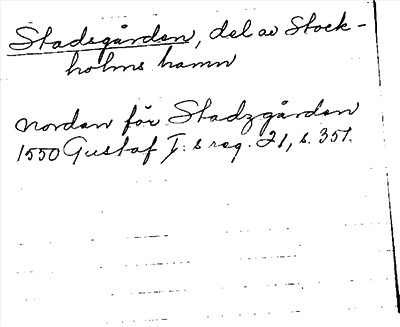 Stadsgården, del av Stock-
holms hamn
nordan för Stadzgården
1550 Gustaf I:s reg. 21, s. 351.